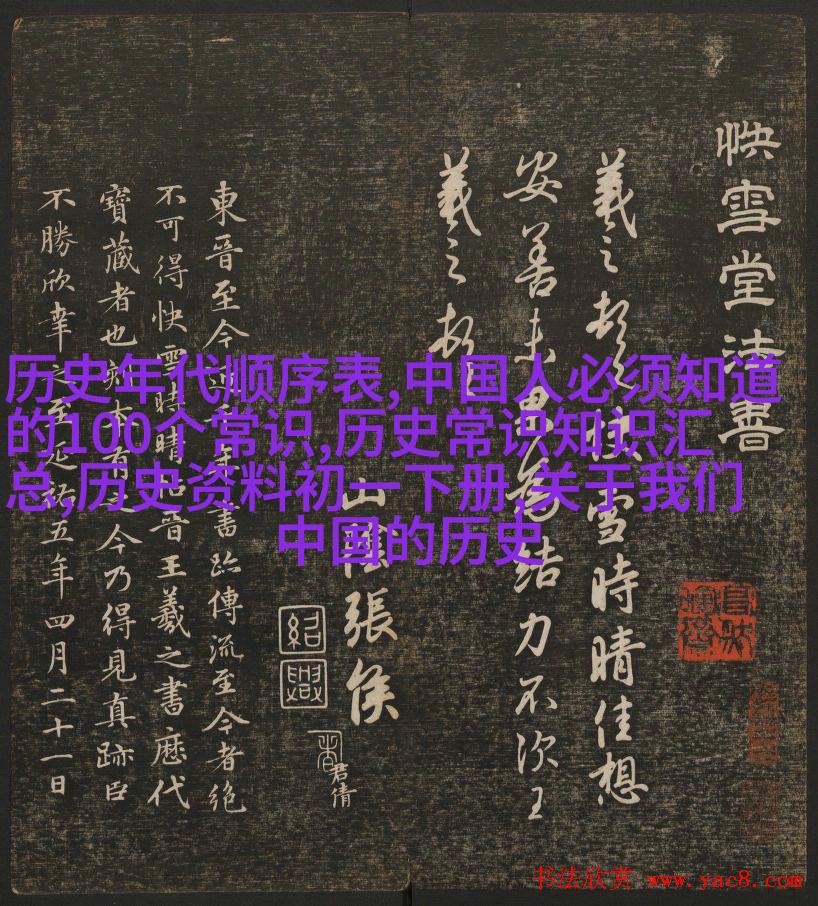 快雪堂法書
羲之頓首快雪時晴佳想
安善未果為結力不次王
羲之頓首
山陰張侯
紹興
君倩
東晉至今近千年書跡傳流至今者絕
不可得快雪時晴帖晉王羲之書歷代
寶藏者也刻本有之今乃得見真跡臣
不勝欣幸之至延祐五年四月二十一日
历史年代顺序表,中国人必须知道
的100个常识,历史常识知识汇
总,历史资料初一下册,关于我们
中国的历史
书法欣赏 www.yac8.com